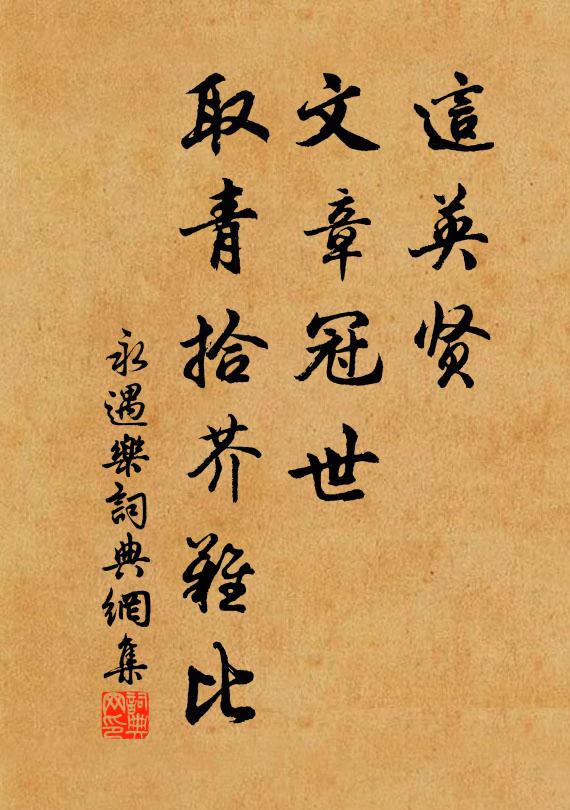 這英贤
文章冠世
取青拾芥難比
永遇樂詞典網集
詞典
网印